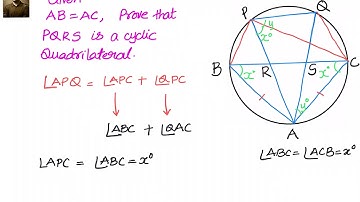 Given
AB=AC, Prove that
PQRS is a cyclic
Quadrilateral.
∠APQ = ∠APC + ∠QPC
∠ABC + ∠QAC
∠APC = ∠ABC = x°
P
Q
y
x°
B
x°
R
S
x°
C
y°
A
∠ABC = ∠ACB = x°